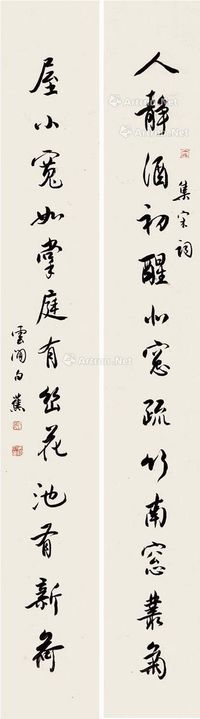 人靜酒初醒北窓疏竹南窓叢菊
集宋詞
屋小寬如掌庭有幽花池有新荷
雲間白蕉
Artron.Net